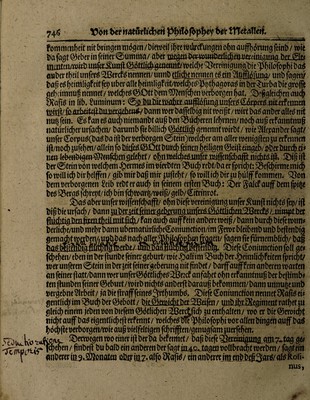 746 Von der natürlichen Philosophey der Metallen.
kommenheit mit bringen mögen / dieweil ihr würckungen ohn auffhörung seind / wie
da sagt Geber in seiner Summa / aber wegen der wunderlichen vereinigung der Ele
menten / wird unser Kunst Göttlich genennet / welche Vereinigung die Philosophi das
ander theil unsers Wercks nennen / unnd etliche nennen es ein Aufflösung / und sagen /
daß es heimligkeit sey uber alle heimligkeit / welches Pythagoras in der Turba die grosse
geheimnuß nennet / welches GOtt den Menschen verborgen hat. Deßgleichen auch
Rasis in lib. Luminum: So du die warhe aufflösung unsers Cörpers nit erkennen
wirst / so arbeitest du vergebens / dann wer dasselbig nit weißt / wirt das ander alles nit
nutz sein. Es kan es auch niemandt auß den Büchern lehrnen / noch auß erkanntnuß
natürlicher ursachen / darumb sie billich Göttlich genennt wirdt / wie Alexander sagt /
unser Corpus / das da ist der verborgen Stein / welcher am aller wenigsten zu erkennen
ist / noch zusehen / allein so dieses GOtt durch seinen heiligen Geist eingeb / oder durch ei-
nen lebendigen Menschen gelehrt / ohn welches unser wissenschafft nichts ist. Diß ist
der Stein von welchem Hermes im vierdten Buch redt da er spricht: Beschirme mich
so will ich dir helffen / gib mir daß mir zusteht / so will ich dir zu hülff kommen. Von
dem verborgenen Leib redt er auch in seinem ersten Buch: Der Falck auff dem spitz
des Bergs schreit / ich bin schwartz / weiß / gelb / Citrinrot.
Das aber unser wissenschafft / ohn diese vereinigung unser Kunst nichts sey / ist
diß die ursach / dann zu der zeit seiner gebärung unsers Göttlichen Wercks / nimpt der
flüchtig den irren theil mit sich / kan auch kein anderer weiß / dann durch diese wun-
derliche / und mehr dann ubernatürliche Coniunction im Fewr bleibend und bestendig
gemacht werden / und das nach aller Philosophi fragen / sagen sie fürnemblich / daß
das beständig flüchtig werde / und das flüchtig beständig. Diese Coniunction soll ge-
schehen / eben in der stunde seiner geburt / wie Hali im Buch der Heimligkeiten spricht /
wer unsern Stein in der zeit seiner gebärung nit findet / darff auff keinen andern an sein
stat warten / dann wer unser Göttliches Werck anfahet ohn erkanntnuß der bestimb-
ten stunden seiner Geburt / wird nichts anderst darauß bekommen / dann unnutze und
vergebne Arbeit / in die straff seines Irrthumbs. Diese Coniunction nennet Rasis ei-
gentlich im Buch der Gebott / die Gewicht der Weisen / und ihr Regiment rathet zu
gleich einem jeden von diesem Göttlichen Werck sich zu enthalten / wo er die Gewicht
nicht auff das eigentlichest erkennt / welches die Philosophi vor allen dingen auff das
höchste verborgen / wie auß vielfeltigen schrifften / gnugsam zuersehen.
Derwegen wo einer ist der da bekennet / daß diese Vereinigung am 7. tag ge-
schehen / findest du bald ein anderen der sagt in 40. tagen vollbracht werden / sagt ein
anderer in 9. Monaten oder in 7. also Rasis / ein anderer im end deß Jars / als Rosi-
nus,
Temporis